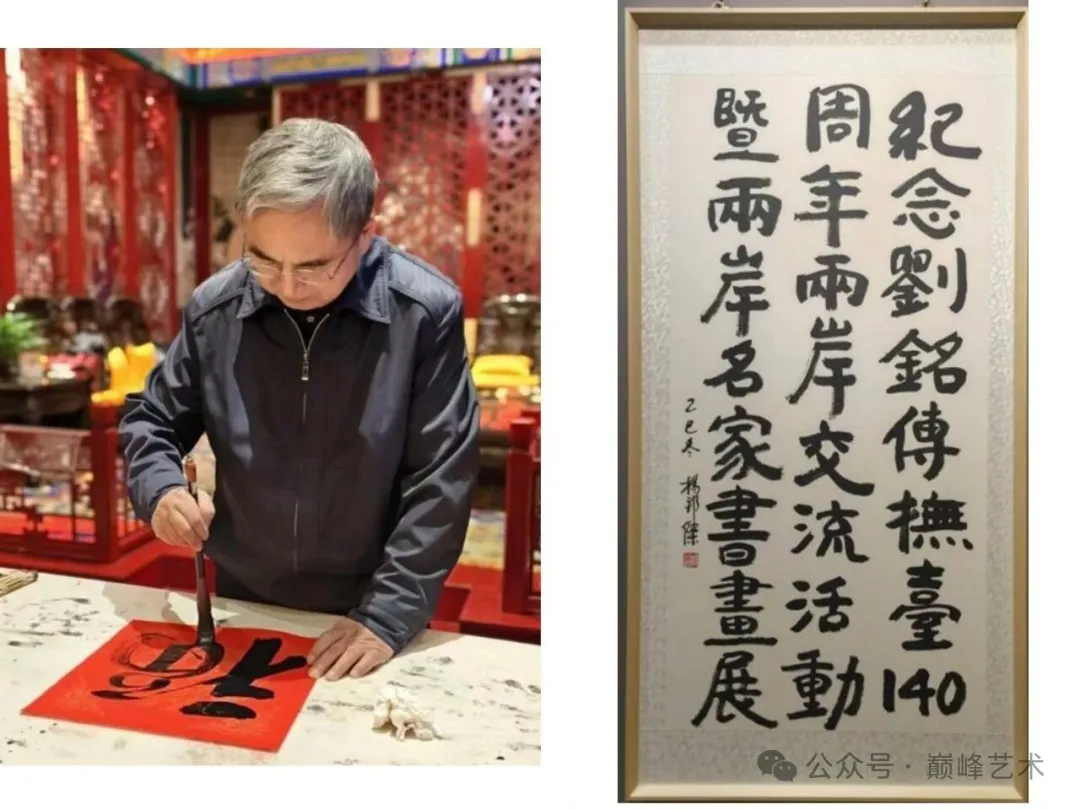 紀念劉銘傳撫臺140
周年兩岸交流活動
暨兩岸名家書畫展
乙巳冬 楊邦傑
福
公众号 · 巅峰艺术